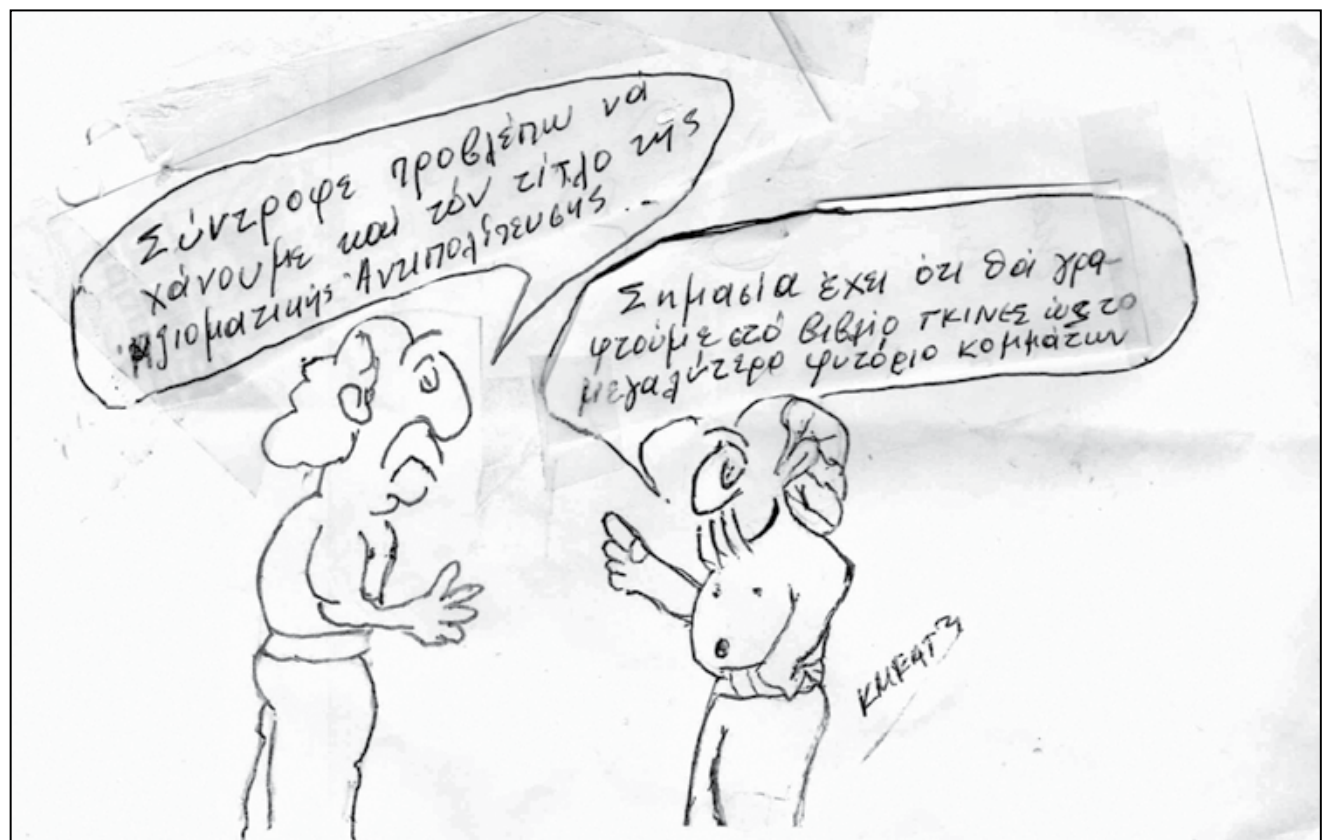 Σύντροφε προβλέπω να
χάνουμε και τόν τίτλο τής
ηξιοματικής Αντιπολίτευσης...
Σημασία έχει ότι θα γρα-
φτούμε στό βιβλίο ΓΚΙΝΕΣ ώς το
μεγαλύτερο φυτόριο κομμάτων